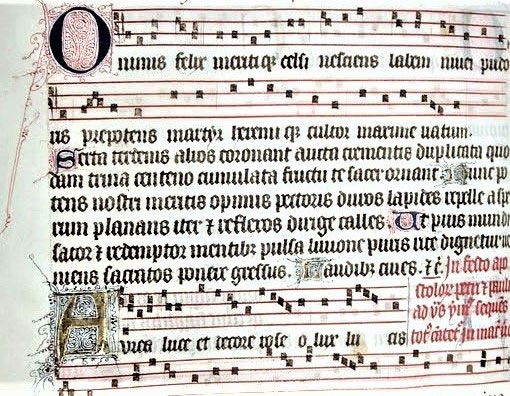 O nimis felix meriti qꝫ celsi nesciens labem niuei pudo
ris prepotens martyr heremi qꝫ cultor maxime uatum.
Serta terdenis alios coronant aucta crementis duplicata quo
dam trina centeno cumulata fructu te sacer ornant. Nunc po
tens nostri meritis opimis pectoris duros lapides repelle aspe
rum planans iter ⁊ reflexos dirige calles. Ut pius mundi
sator ⁊ redemptor mentibꝫ pulsa liuione puris rite dignetur ue
niens sacratos ponere gressus. Laudibꝫ ciues. ⁊c̄. In festo apo
stoloꝝ petri ⁊ pauli
ad vs̄ ymꝰ sequēs
Aurea luce et decore rose o lux lu cis